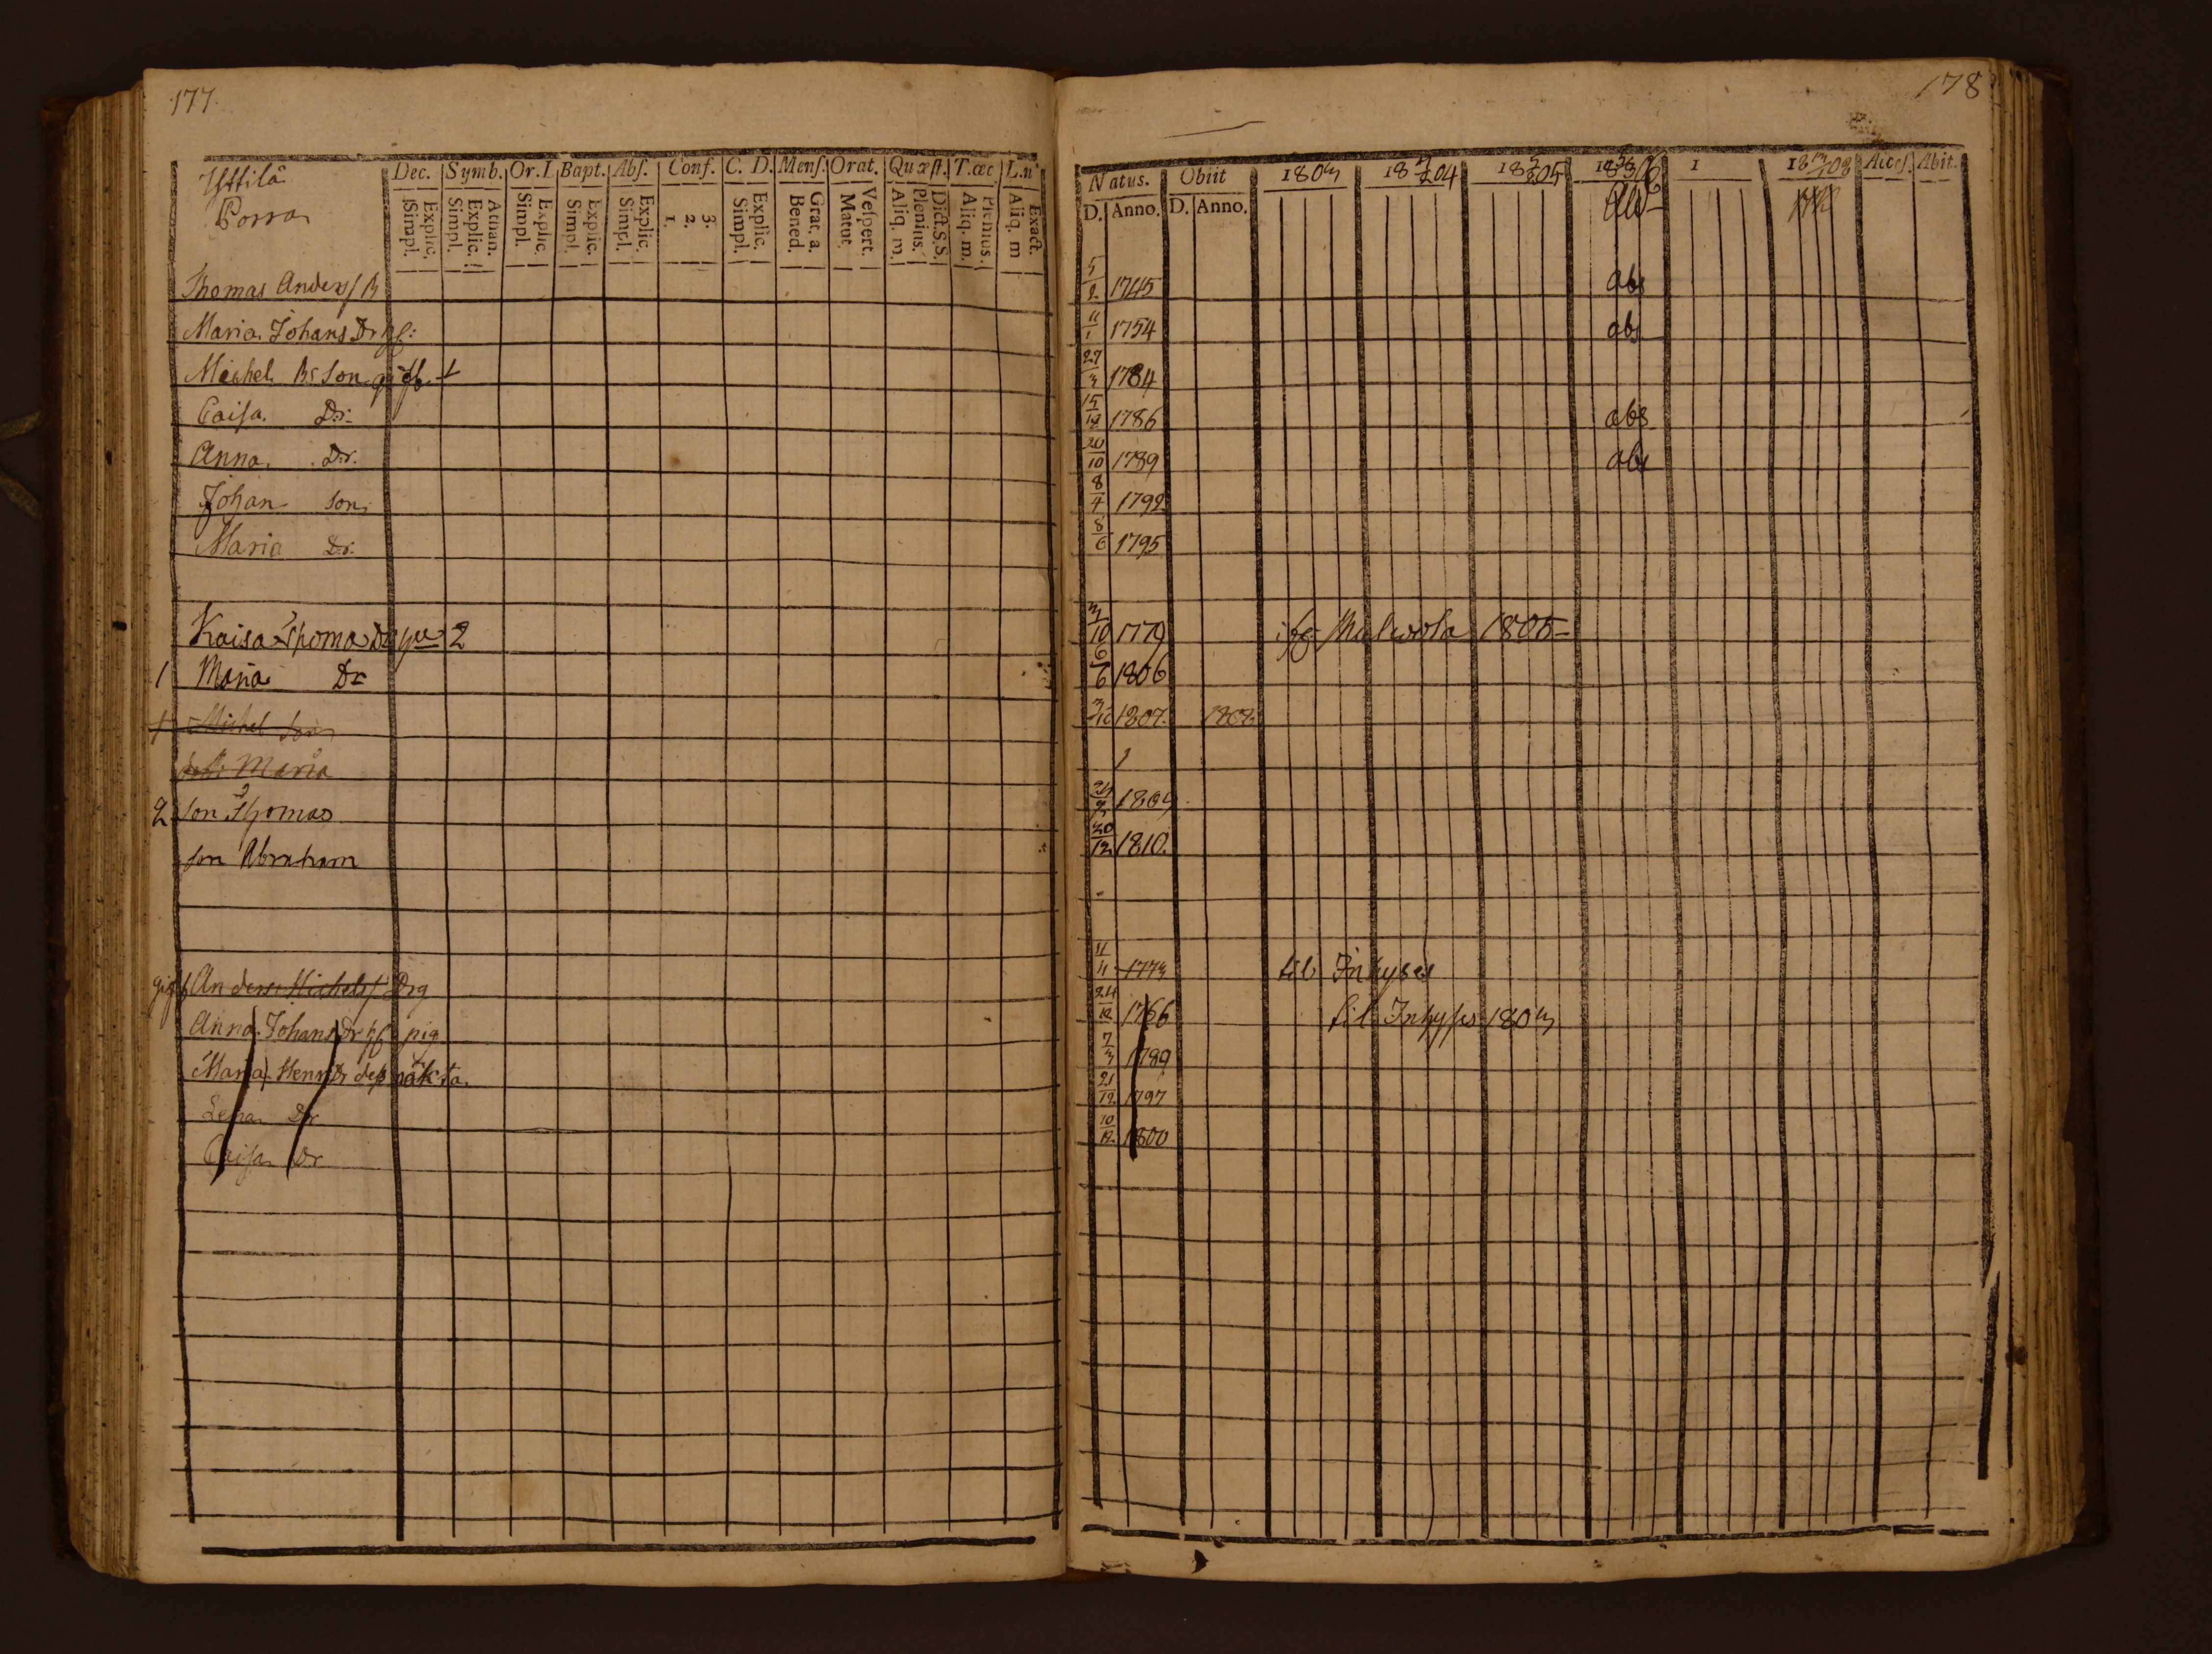 177.
Yttilä
Porra
Dec. Symb. Or. I Bapt. Abſ. Conf. C. D. Menſ. Orat. Quæſt. T. œc L. n
Explic. Simpl. Athan. Explic. Simpl. Explic. Simpl. Explic. Simpl. Explic. Simpl. 3. 2. 1. Explic. Simpl. Grat. a. Bened. Veſpert. Matut. Dict. S. S. Plenius. Aliq. m. Plenius. Aliq. m. Exact. Aliq. m
Thomas Andersſ B
Maria Johans Dr hſ:
Michel Bs Son gift +
Caisa Dr.
Anna Dr.
Johan Son
Maria Dr.
Kaisa Thomas Dr 2
1 Maria Dr
+ Michel Son
Maria
2 Son Thomas
Son Abraham
gift Anders Michelsſ Drg
Anna Johans Dr pig
Maria Henr Dr
Lena Dr
Caisa Dr
178
Natus. Obiit 1803 18 04 18 05 18 06 I 18 08 Acceſ. Abit.
D. Anno. D. Anno.
5/2 1745 abs
11/1 1754 abs
27/3 1784
15/12 1786 abs
20/10 1789 abs
8/4 1792
8/6 1795
3/10 1779 1805
6/6 1806
3/10 1807. 1808
1809
20/12 1810.
11/11 1773 til Inhyses
24/12 1766 til Inhyses 1803
7/3 1789
21/12 1797
10/12 1800